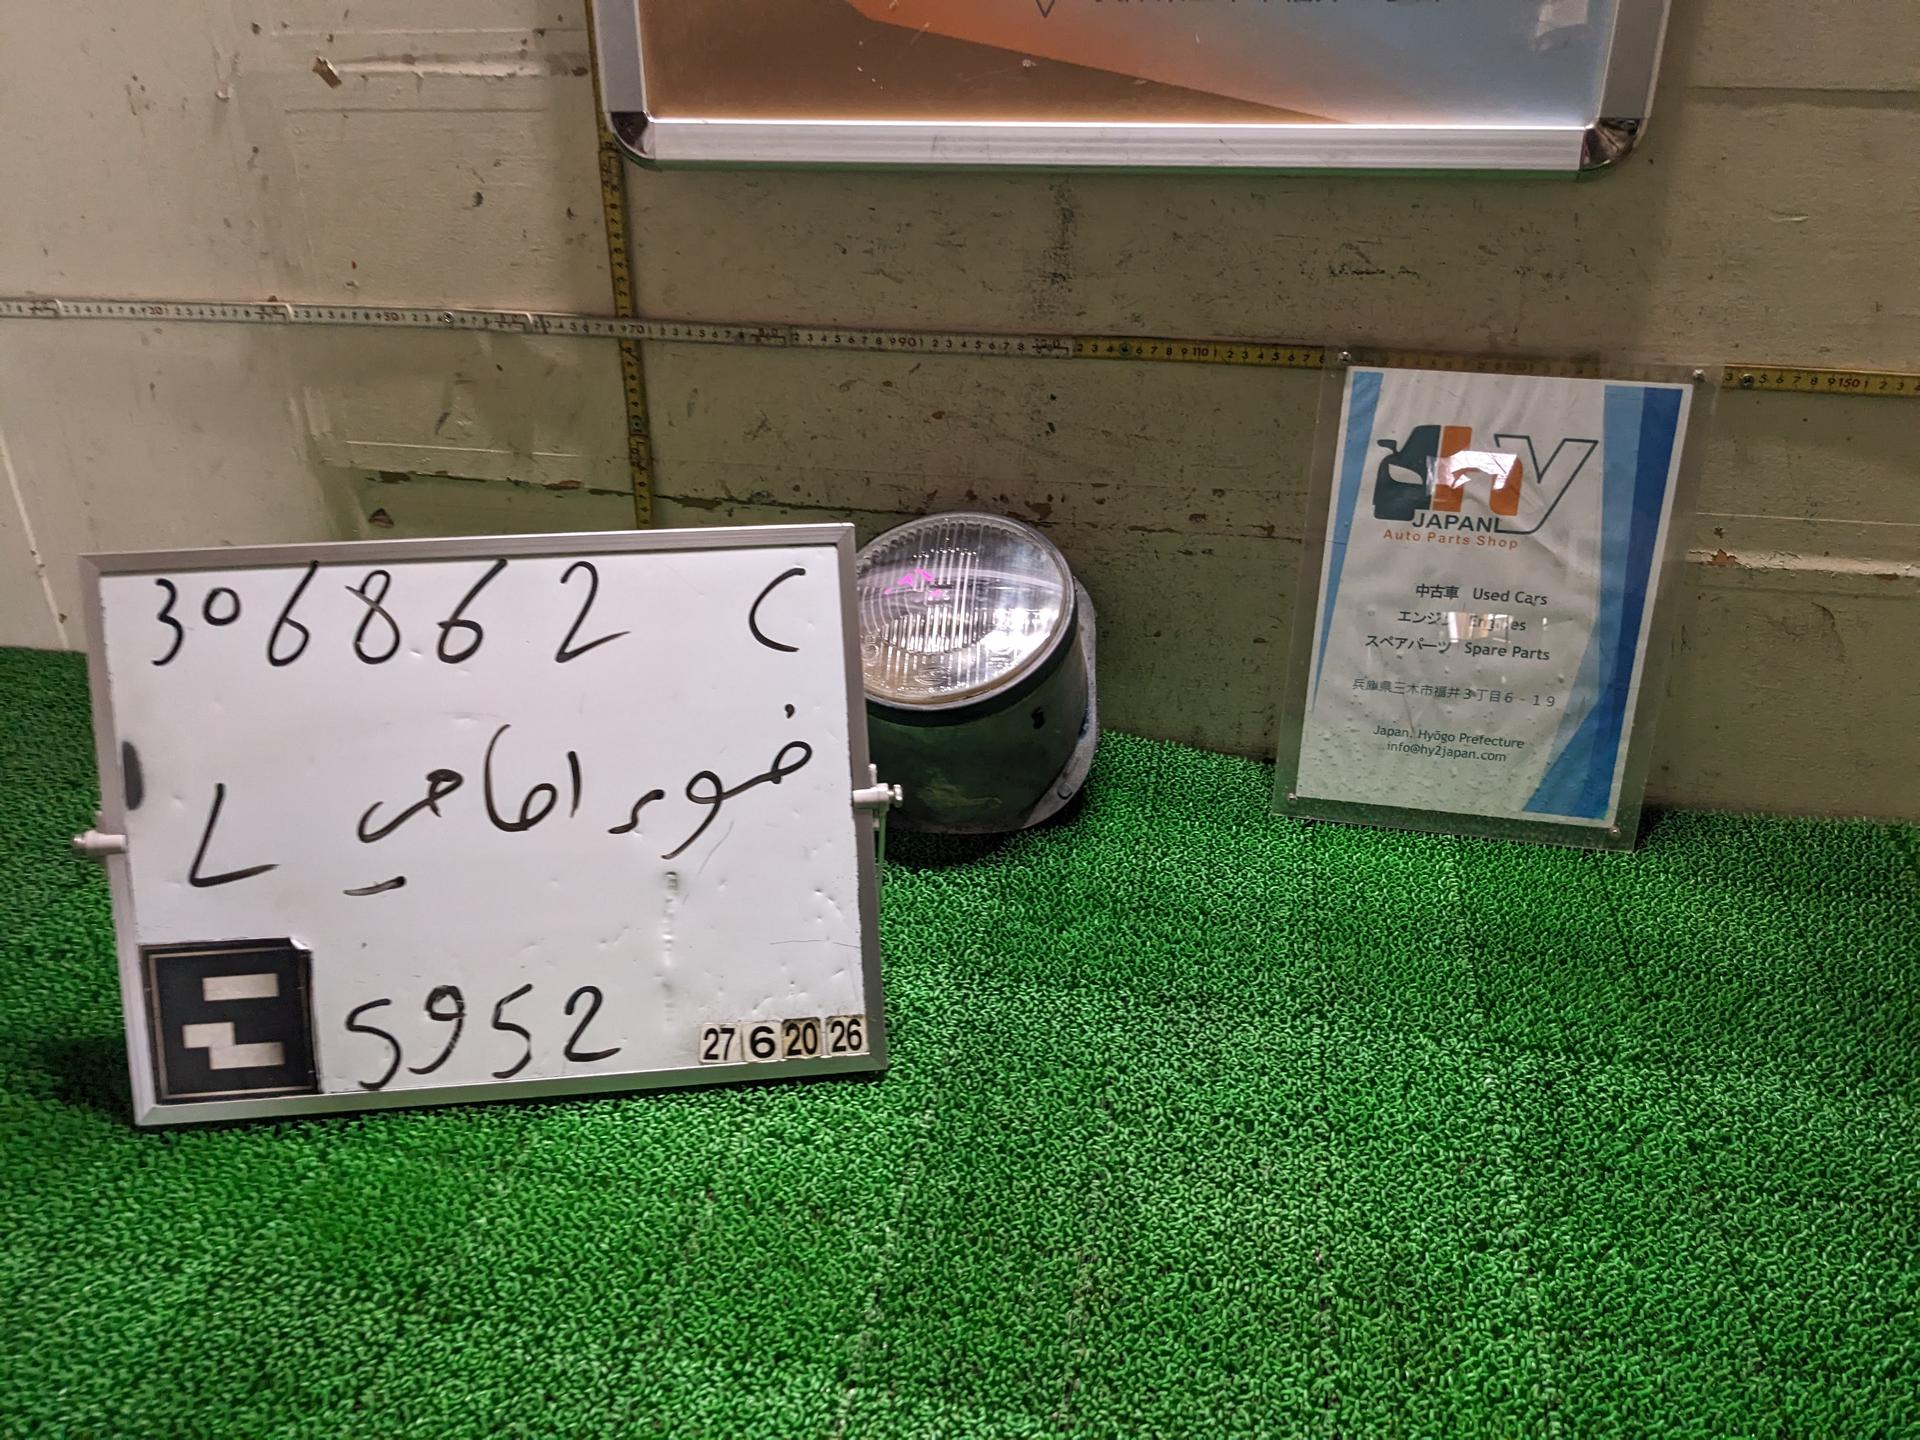 306862 C
ضوء امامي L
5952
27 6 20 26
hy
JAPAN
Auto Parts Shop
中古車 Used Cars
エンジン Engines
スペアパーツ Spare Parts
兵庫県三木市福井3丁目6-19
Japan, Hyōgo Prefecture
info@hy2japan.com